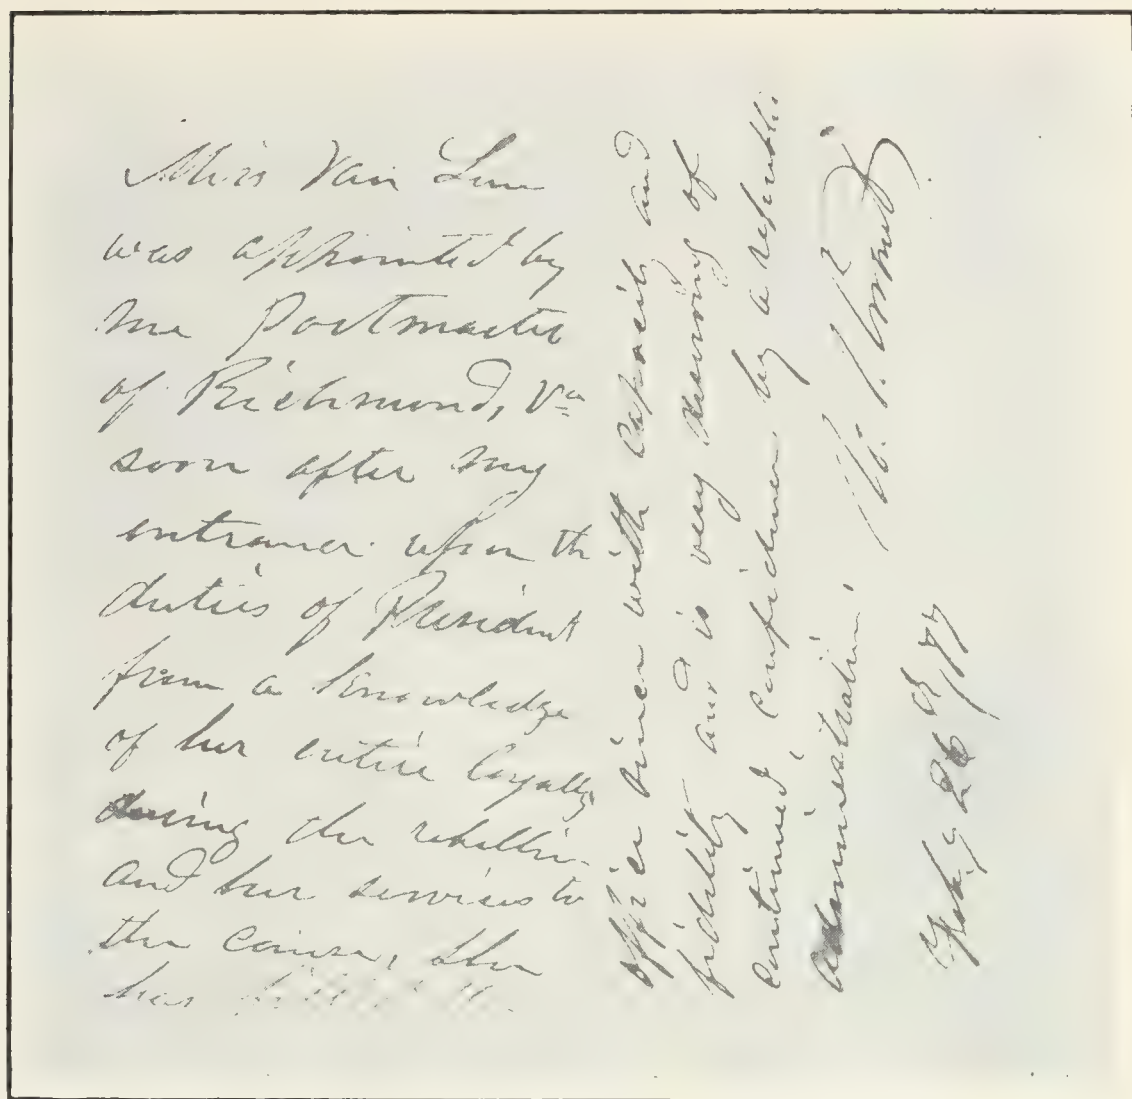 Miss Van Lew
was appointed by
me Postmaster
of Richmond, Va
soon after my
entrance upon the
duties of President
from a knowledge
of her entire loyalty
during the rebellion
and her services to
the cause. She
has
office since with capacity and
fidelity and is very deserving of
continued, confidence by a republi
Administration.
U. S. Grant
Feby 26th '77